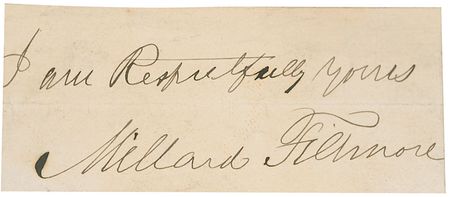 I am Respectfully yours
Millard Fillmore